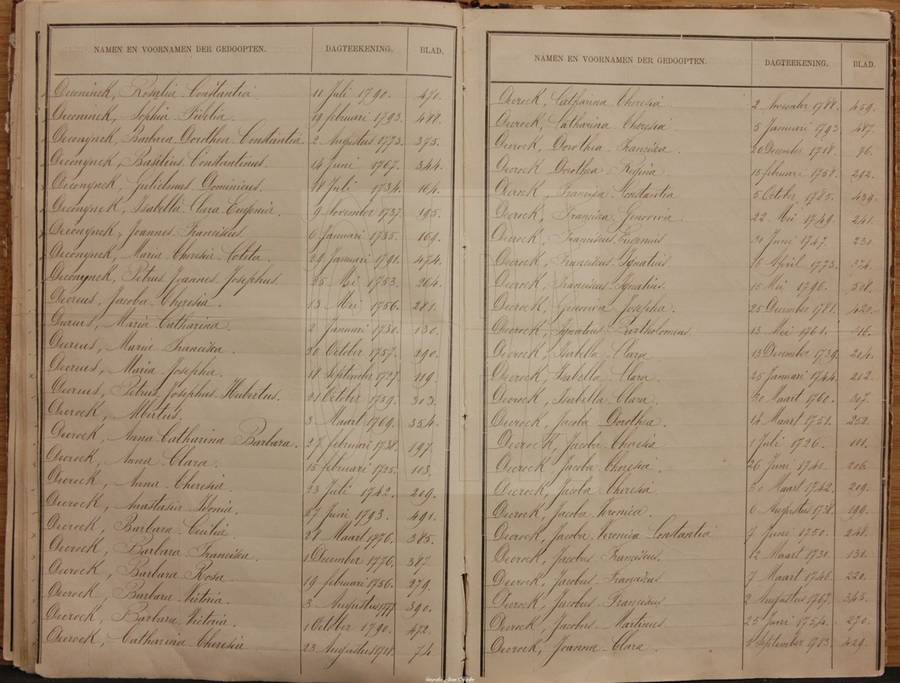 NAMEN EN VOORNAMEN DER GEDOOPTEN. DAGTEEKENING. BLAD.
Deconinck, Rosalia Constantia 11 Juli 1790. 470.
Deconinck, Sophia Fidelia 19 februari 1793. 488.
Deconynck, Barbara Dorothea Constantia 2 Augustus 1773. 375.
Deconynck, Basilius Constantinus 14 Juni 1767. 344.
Deconynck, Guilielmus Dominicus. 18 Juli 1734. 164.
Deconynck, Isabella Clara Eugenia. 9 November 1737. 195.
Deconynck, Joannes Franciscus 6 Januari 1735. 169.
Deconynck, Maria Theresia Coleta. 29 Januari 1791. 474.
Deconynck, Petrus Joannes Josephus 25 Mei 1753. 264.
Decreus, Jacoba Theresia. 13 Mei 1756. 281.
Decreus, Maria Catharina. 2 Januari 1730. 130.
Decreus, Maria Francisca. 30 October 1757. 290.
Decreus, Maria Josepha. 18 September 1727. 119.
Decreus, Petrus Josephus Hubertus. 21 October 1759. 303.
Decrock, Albertus. 3 Maart 1769. 354.
Decrock, Anna Catharina Barbara. 27 februari 1738. 197.
Decrock, Anna Clara. 15 februari 1725. 103.
Decrock, Anna Theresia 23 Juli 1742. 209.
Decrock, Anastasia Idonia. 27 Juni 1793. 491.
Decrock, Barbara Cecilia 28 Maart 1776. 385.
Decrock, Barbara Francisca. 1 December 1776. 387.
Decrock, Barbara Rosa. 19 februari 1756. 279.
Decrock, Barbara Victoria. 3 Augustus 1777. 390.
Decrock, Barbara Victoria. 1 October 1790. 472.
Decrock, Catharina Theresia 23 Augustus 1718. 74.
NAMEN EN VOORNAMEN DER GEDOOPTEN. DAGTEEKENING. BLAD.
Decrock, Catharina Theresia 2 November 1788. 459.
Decrock, Catharina Theresia 5 Januari 1793. 487.
Decrock, Dorothea Francisca. 20 December 1718. 76.
Decrock Dorothea Regina 15 februari 1758. 292.
Decrock, Francisca Constantia 5 October 1785. 439.
Decrock, Francisca Genoveva 22 Mei 1749. 241.
Decrock, Franciscus Eugenius 30 Juni 1747. 230.
Decrock, Franciscus Ignatius 16 April 1773. 374.
Decrock, Franciscus Ignatius. 15 Mei 1796. 508.
Decrock, Genoveva Josepha. 25 December 1781. 420.
Decrock, Ignatius Bartholomeus 13 Mei 1761. 16.
Decrock, Isabella Clara 13 December 1739. 204.
Decrock, Isabella Clara. 25 Januari 1744. 212.
Decrock, Isabella Clara. 30 Maart 1760. 307.
Decrock, Jacoba Dorothea. 14 Maart 1751. 252.
Decrock, Jacoba Theresia 1 Juli 1726. 111.
Decrock Jacoba Theresia. 26 Juni 1741. 206.
Decrock, Jacoba Theresia 30 Maart 1742. 209.
Decrock, Jacoba Veronica. 6 Augustus 1738. 199.
Decrock, Jacoba Veronica Constantia 7 Juni 1750. 248.
Decrock, Jacobus Franciscus. 12 Maart 1730. 131.
Decrock, Jacobus Franciscus 7 Maart 1746. 220.
Decrock, Jacobus Franciscus 2 Augustus 1767. 345.
Decrock, Jacobus Martinus 25 Juni 1754. 270.
Decrock, Joanna Clara. September 1783. 429.